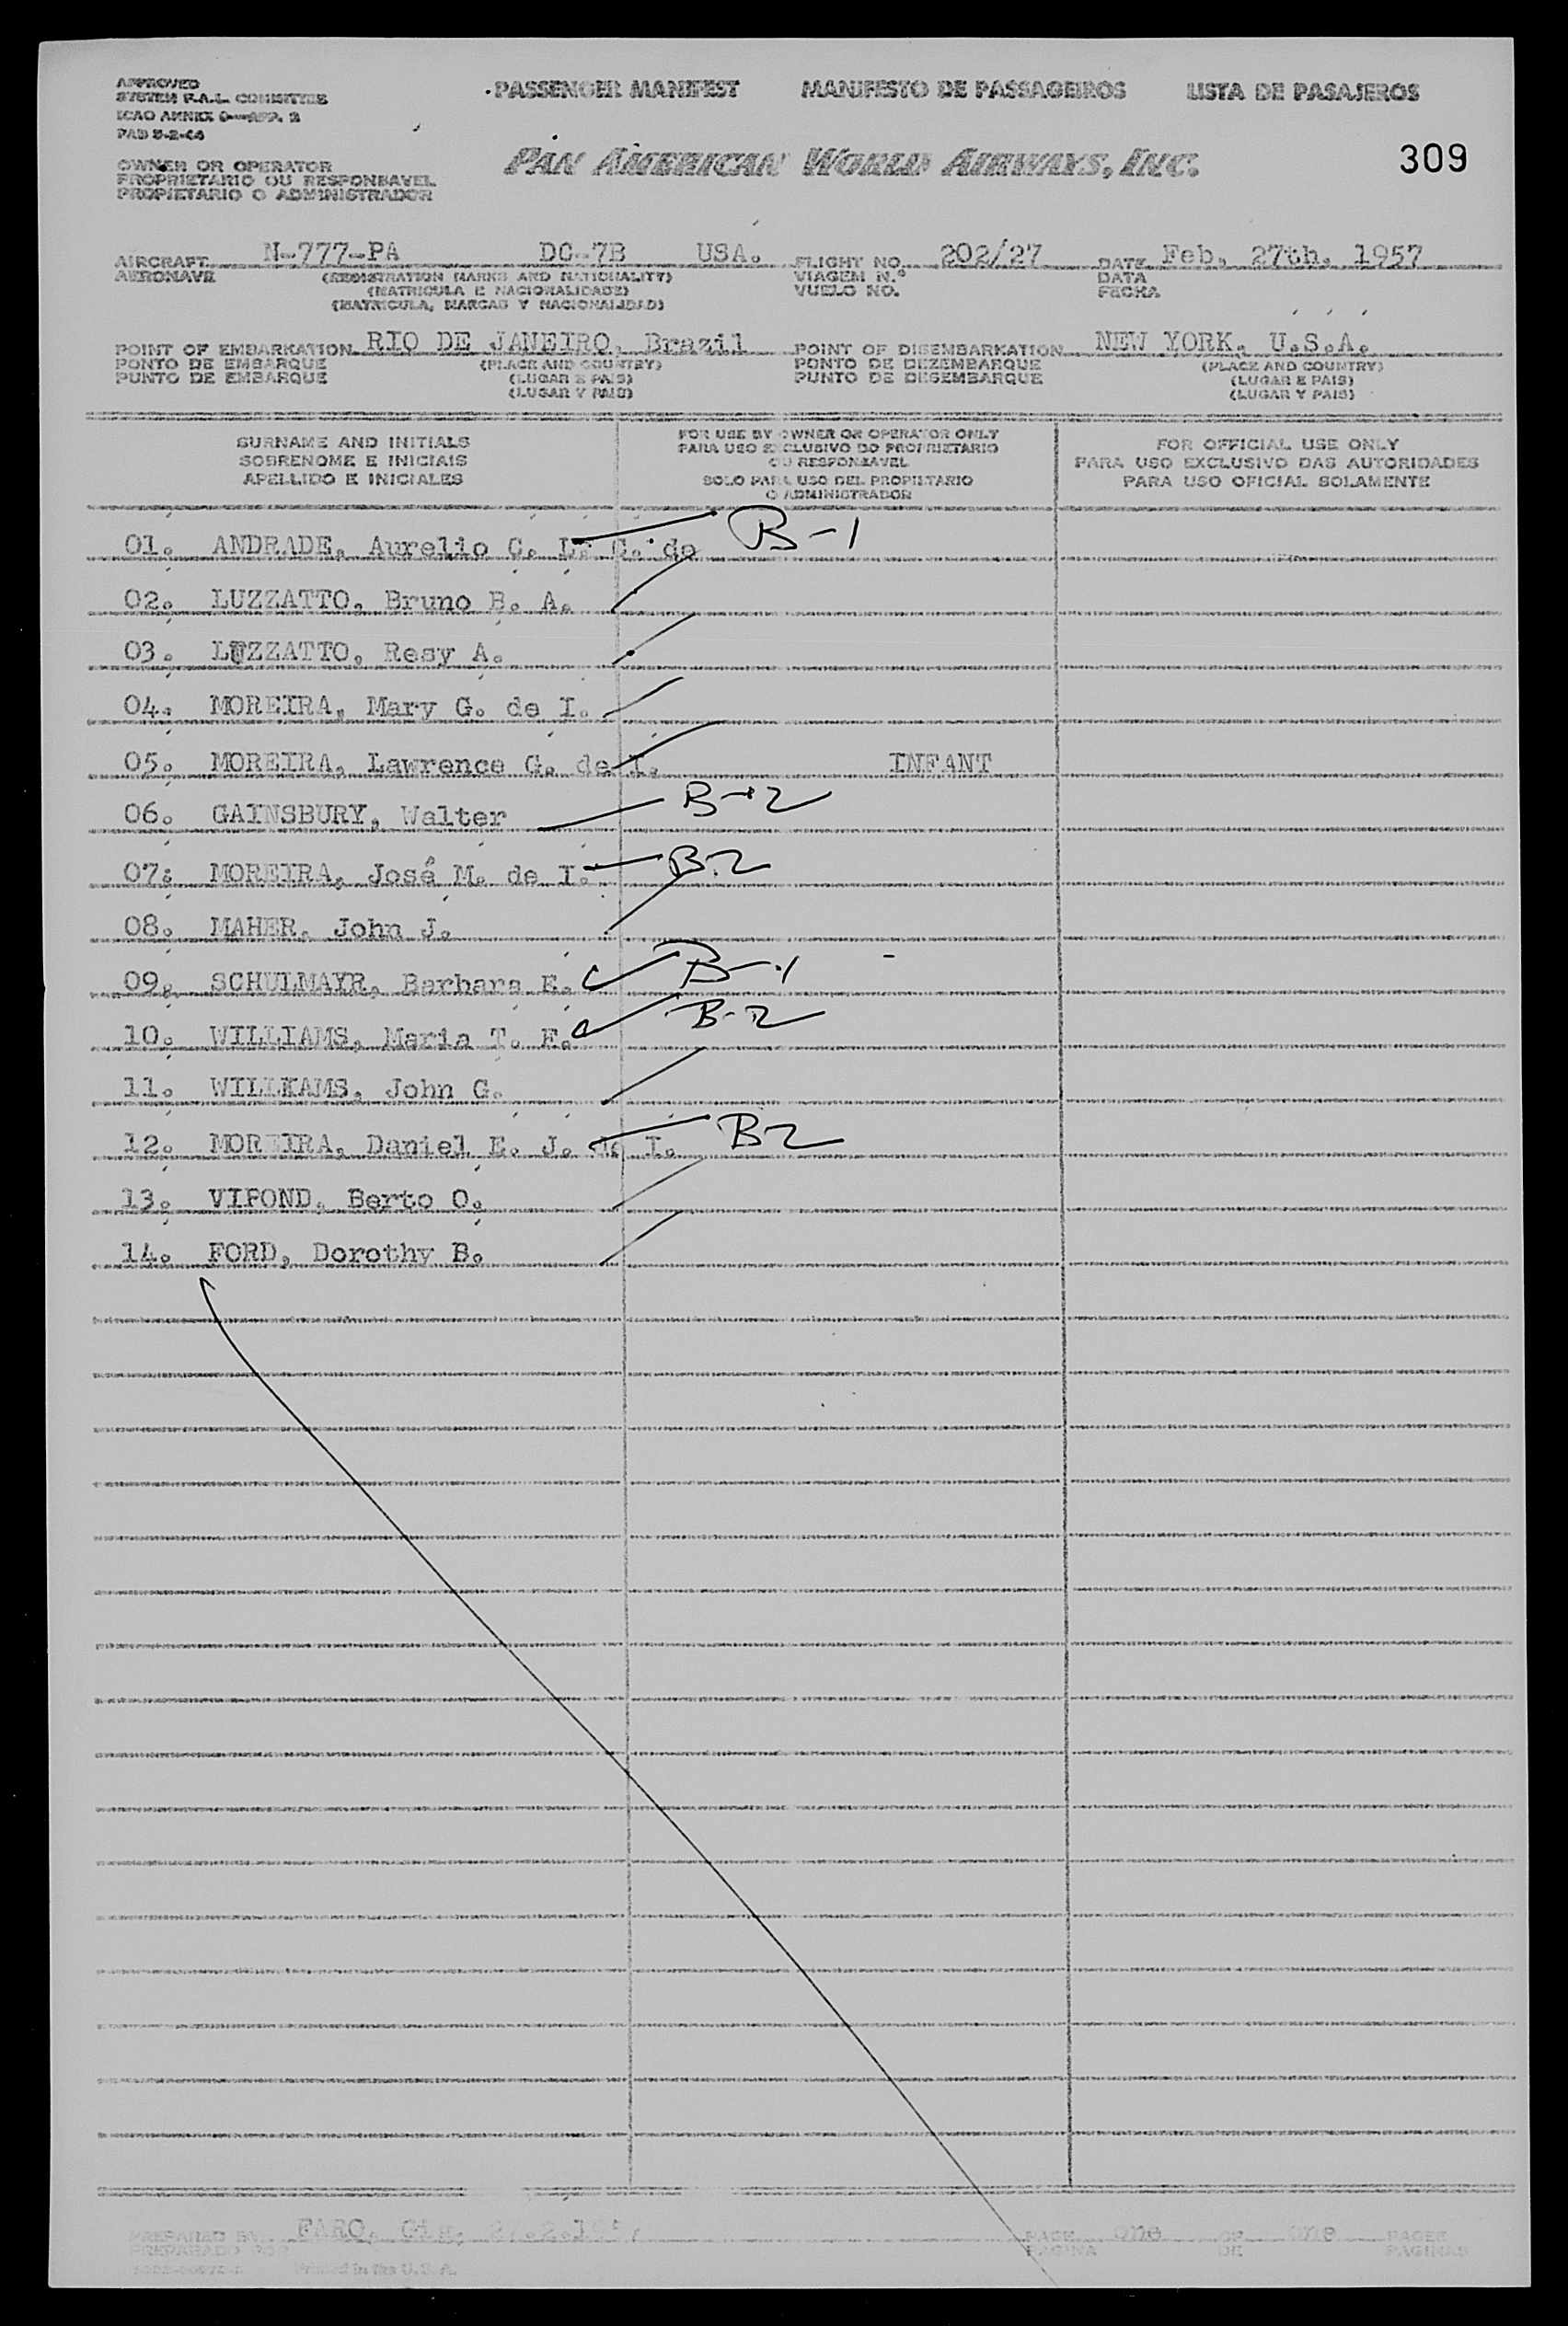 APPROVED
SYSTEM F.A.L. COMMITTEE
ICAO ANNEX 9—APP. 2
PAD
PASSENGER MANIFEST MANIFESTO DE PASSAGEIROS LISTA DE PASAJEROS
309
OWNER OR OPERATOR
PROPRIETARIO OU RESPONSAVEL
PROPIETARIO O ADMINISTRADOR
PAN AMERICAN WORLD AIRWAYS, INC.
AIRCRAFT N-777-PA DC-7B USA. FLIGHT NO. 202/27 DATE Feb, 27th, 1957
AERONAVE (REGISTRATION MARKS AND NATIONALITY) VIAGEM N.º DATA
(MATRICULA E NACIONALIDADE) VUELO NO. FECHA
(MATRICULA, MARCAS Y NACIONALIDAD)
POINT OF EMBARKATION RIO DE JANEIRO, Brazil POINT OF DISEMBARKATION NEW YORK, U.S.A.
PONTO DE EMBARQUE (PLACE AND COUNTRY) PONTO DE DEZEMBARQUE (PLACE AND COUNTRY)
PUNTO DE EMBARQUE (LUGAR E PAIS) PUNTO DE DESEMBARQUE (LUGAR E PAIS)
(LUGAR Y PAIS) (LUGAR Y PAIS)
SURNAME AND INITIALS
SOBRENOME E INICIAIS
APELLIDO E INICIALES
FOR USE BY OWNER OR OPERATOR ONLY
PARA USO EXCLUSIVO DO PROPRIETARIO
OU RESPONSAVEL
SOLO PARA USO DEL PROPIETARIO
O ADMINISTRADOR
FOR OFFICIAL USE ONLY
PARA USO EXCLUSIVO DAS AUTORIDADES
PARA USO OFICIAL SOLAMENTE
01. ANDRADE, Aurelio C. L. C. de B-1
02. LUZZATTO, Bruno B. A.
03. LUZZATTO, Resy A.
04. MOREIRA, Mary G. de I.
05. MOREIRA, Lawrence G. de I. INFANT
06. GAINSBURY, Walter B-2
07. MOREIRA, José M. de I. B.2
08. MAHER, John J.
09. SCHULMAYR, Barbara E. B-1
10. WILLIAMS, Maria T. F. B-2
11. WILLKAMS, John G.
12. MOREIRA, Daniel E. J. de I. B2
13. VIPOND, Berto O.
14. FORD, Dorothy B.
PREPARED BY FARO, PAGE one OF one PAGES
PREPARADO POR PAGINA DE PAGINAS
Printed in the U. S. A.